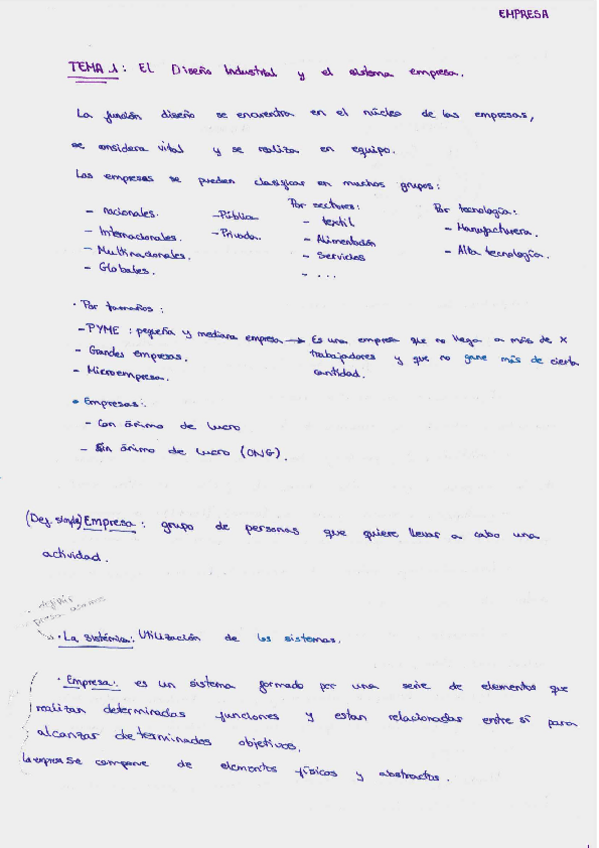 EMPRESA
TEMA 1: EL Diseño Industrial y el sistema empresa.
La función diseño se encuentra en el núcleo de las empresas,
se considera vital y se realiza en equipo.
Las empresas se pueden clasificar en muchos grupos:
- nacionales.
- Internacionales.
- Multinacionales.
- Globales.
- Pública
- Privada.
Por sectores:
- textil
- Alimentación
- Servicios
- ...
Por tecnología:
- Manufacturera.
- Alta tecnología.
· Por tamaños:
- PYME: pequeña y mediana empresa → Es una empresa que no llega a más de X
trabajadores y que no gane más de cierta
cantidad.
- Grandes empresas.
- Microempresa.
• Empresas:
- Con ánimo de lucro
- Sin ánimo de lucro (ONG).
(Def. simple) Empresa: grupo de personas que quiere llevar a cabo una
actividad.
· La sistémica: Utilización de los sistemas.
· Empresa: es un sistema formado por una serie de elementos que
realizan determinadas funciones y estan relacionadas entre sí para
alcanzar determinados objetivos.
La empresa se compone de elementos físicos y abstractos.